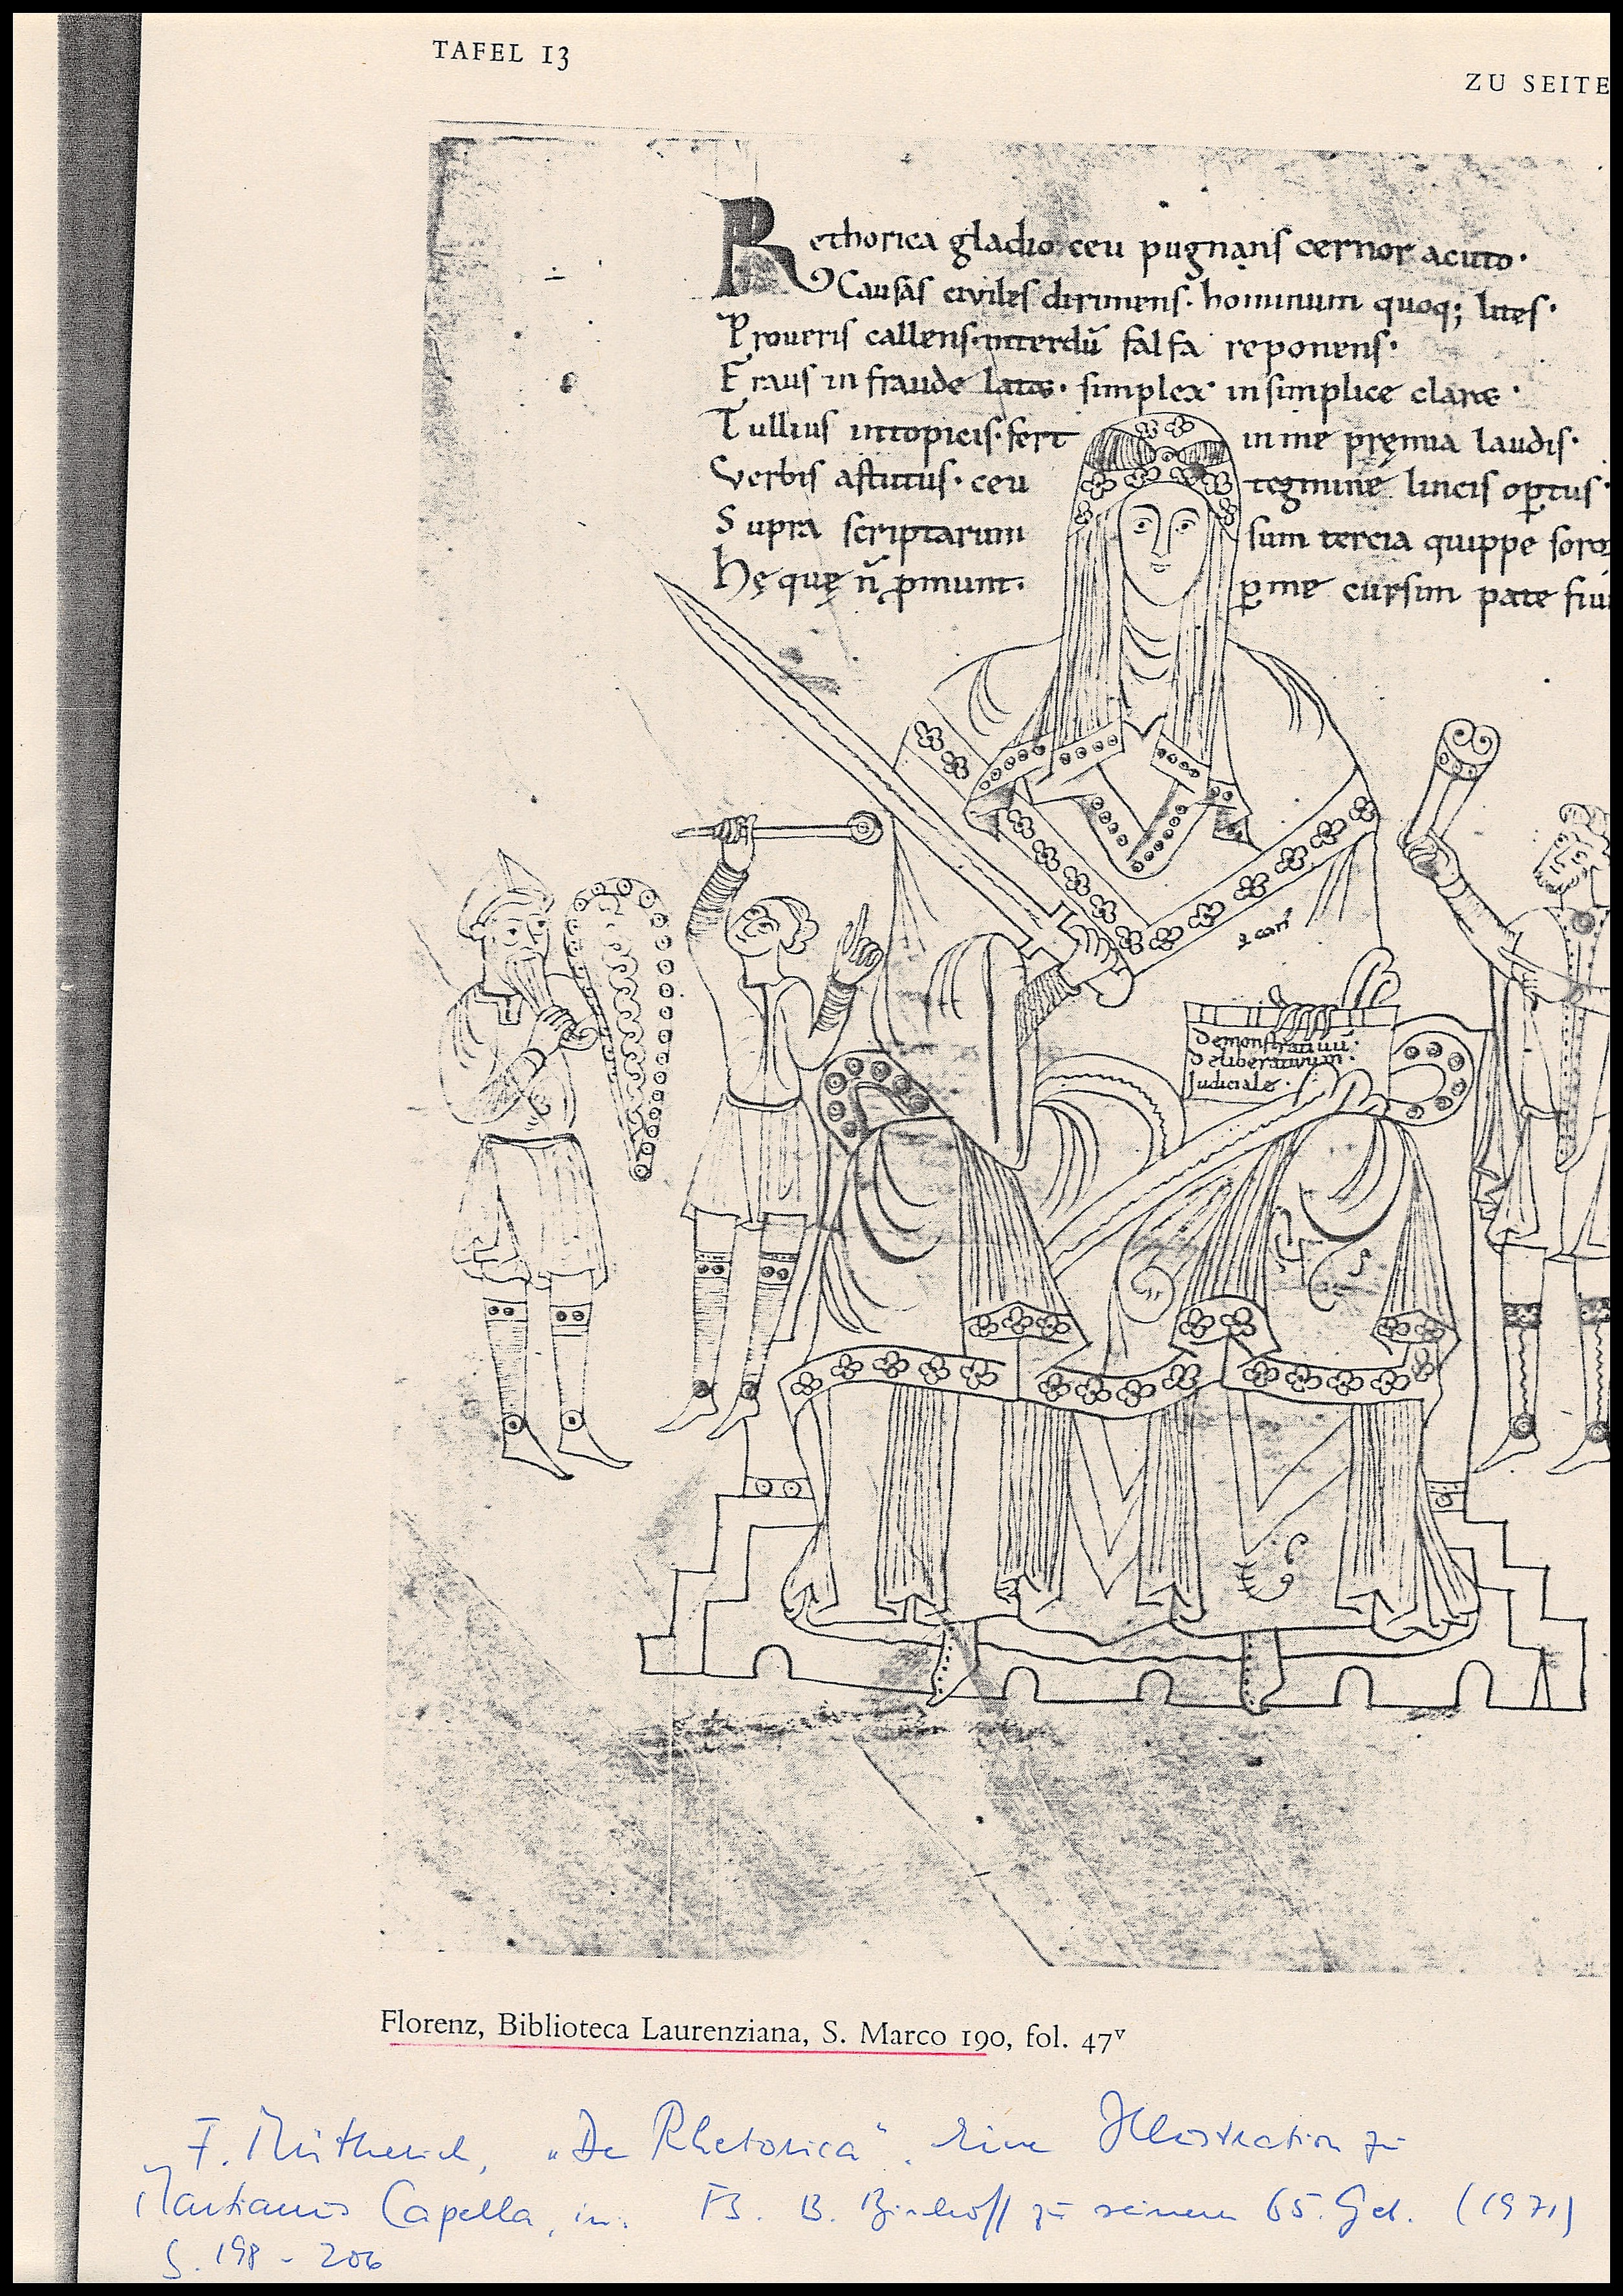 TAFEL 13
ZU SEITE
Rethorica gladio ceu pugnans cernor acuto·
Causas civiles dirimens· hominum quoq; lites·
Proueris callens· interdū falsa reponens·
Fraus in fraude latens· simplex in simplice clare·
Tullius intopicis· fert in me pręmia laudis·
Verbis astutus· ceu tegmine lincis op̱tus·
Supra scriptarum sum tercia quippe soror
Hę quę n̄ p̱munt· p̱ me cursim pate
Demonstratiuū·
Deliberatiuum·
Judiciale·
Florenz, Biblioteca Laurenziana, S. Marco 190, fol. 47ᵛ
F. Mütherich, „De Rhetorica". Eine Illustration zu
Martianus Capella, in: FS. B. Bischoff zu seinem 65. Geb. (1971)
S. 198 - 206